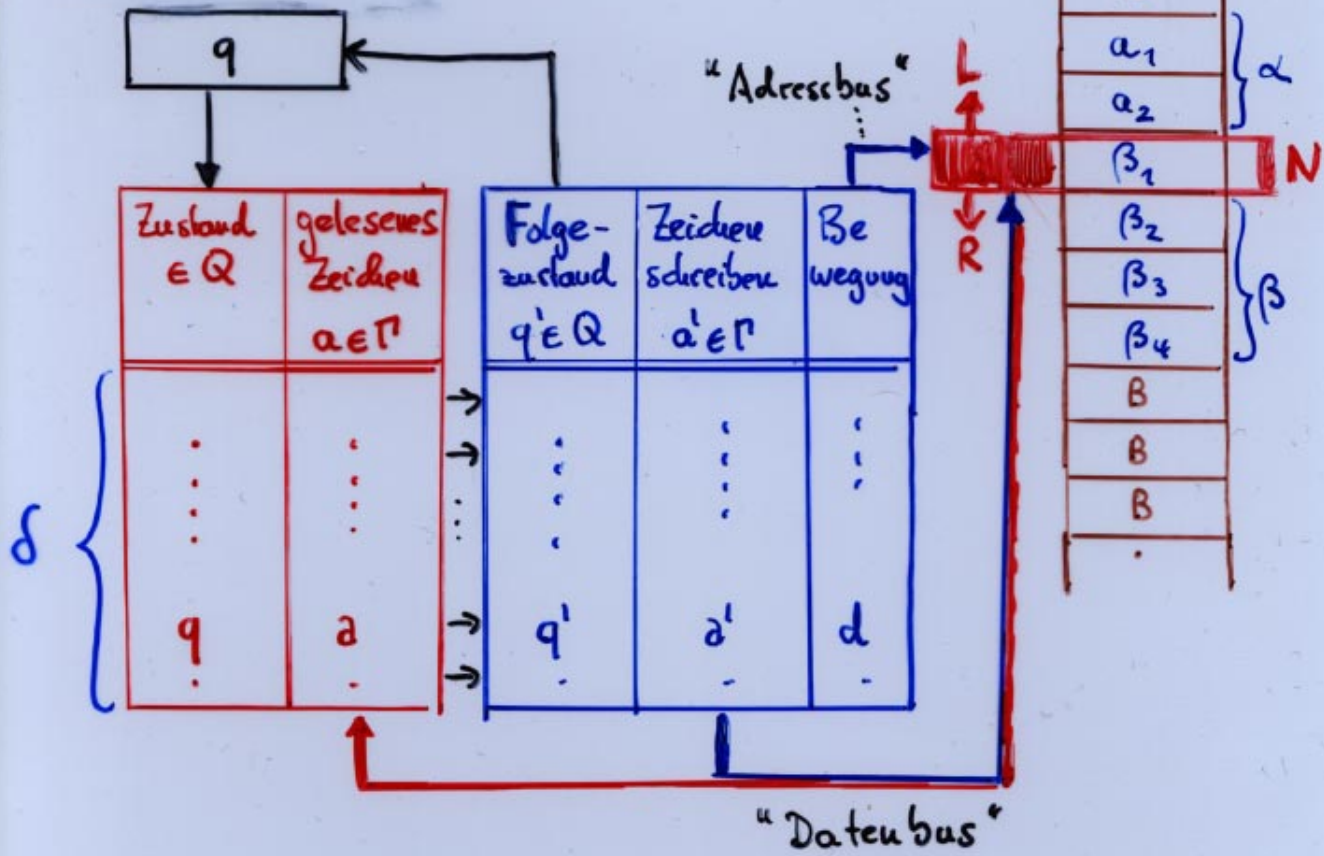 q
"Adressbus"
L
N
R
a₁
a₂
α
β₁
β₂
β₃
β₄
β
B
B
B
Zustand
∈ Q
gelesenes
Zeichen
a ∈ Γ
Folge-
zustand
q' ∈ Q
Zeichen
schreiben
a' ∈ Γ
Be
wegung
δ
q a q' a' d
"Datenbus"